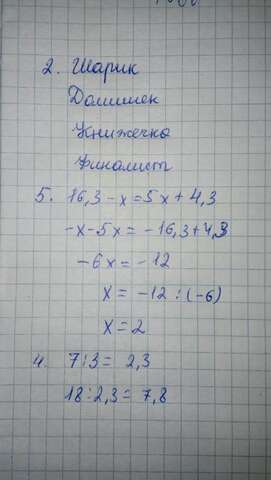 2. Шарик
Домишек
Книжечка
Финалист
5. 16,3-x=5x+4,3
-x-5x=-16,3+4,3
-6x=-12
x=-12:(-6)
x=2
4. 7:3=2,3
18:2,3=7,8